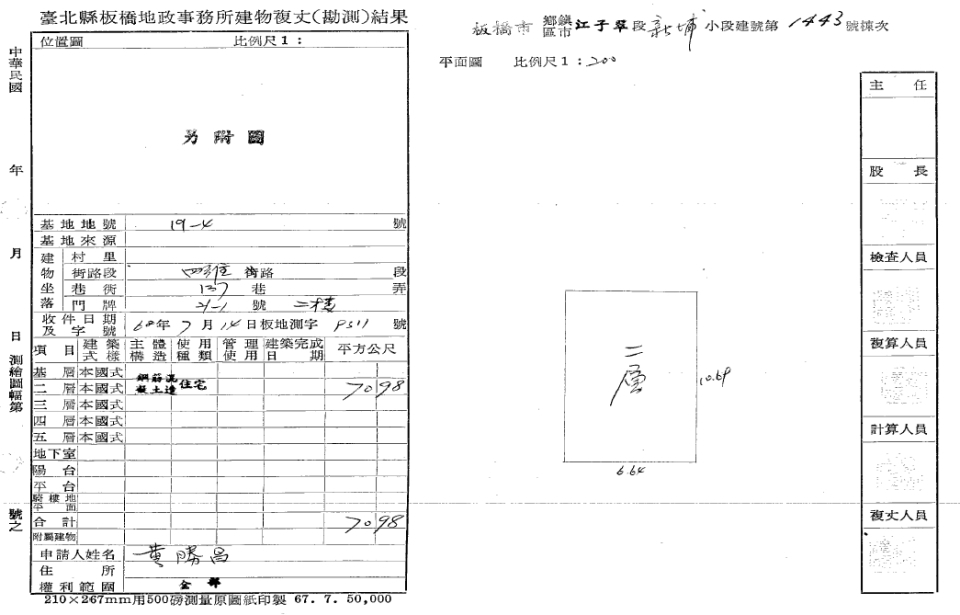 臺北縣板橋地政事務所建物複丈(勘測)結果
板橋市 鄉鎮區市 江子翠段 新埔 小段建號第 1443 號棟次
位置圖 比例尺1:
平面圖 比例尺1:200
另附圖
中華民國 年 月 日 測繪圖幅第 號之
基地地號 19-4 號
基地來源
建物坐落 村里
街路段 四維 街路 段
巷衖 137 巷 弄
門牌 21-1 號 二樓
收件日期及字號 68年7月14日板地測字 9511 號
項目 建築式樣 主體構造 使用種類 管理使用 建築完成日期 平方公尺
基層 本國式
二層 本國式 鋼筋混凝土造 住宅 70 98
三層 本國式
四層 本國式
五層 本國式
地下室
陽台
平台
騎樓地平面
合計 70 98
附屬建物
申請人姓名 黃勝昌
住所
權利範圍 全部
210×267mm用500磅測量原圖紙印製 67. 7. 50,000
二層
10.69
6.64
主任
股長
檢查人員
複算人員
計算人員
複丈人員